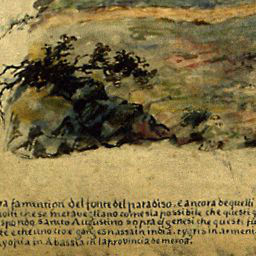 ra famention del fonte del paradiso. e ancora de quelli
molti in ese meravegliano come sia possibile che questi q
responde santo Augustino sopra el genesi che questi fiu
te e che uno zoe ganges nassa in india. tygris in armeni
yopia in Abassia in la provincia de meroa.